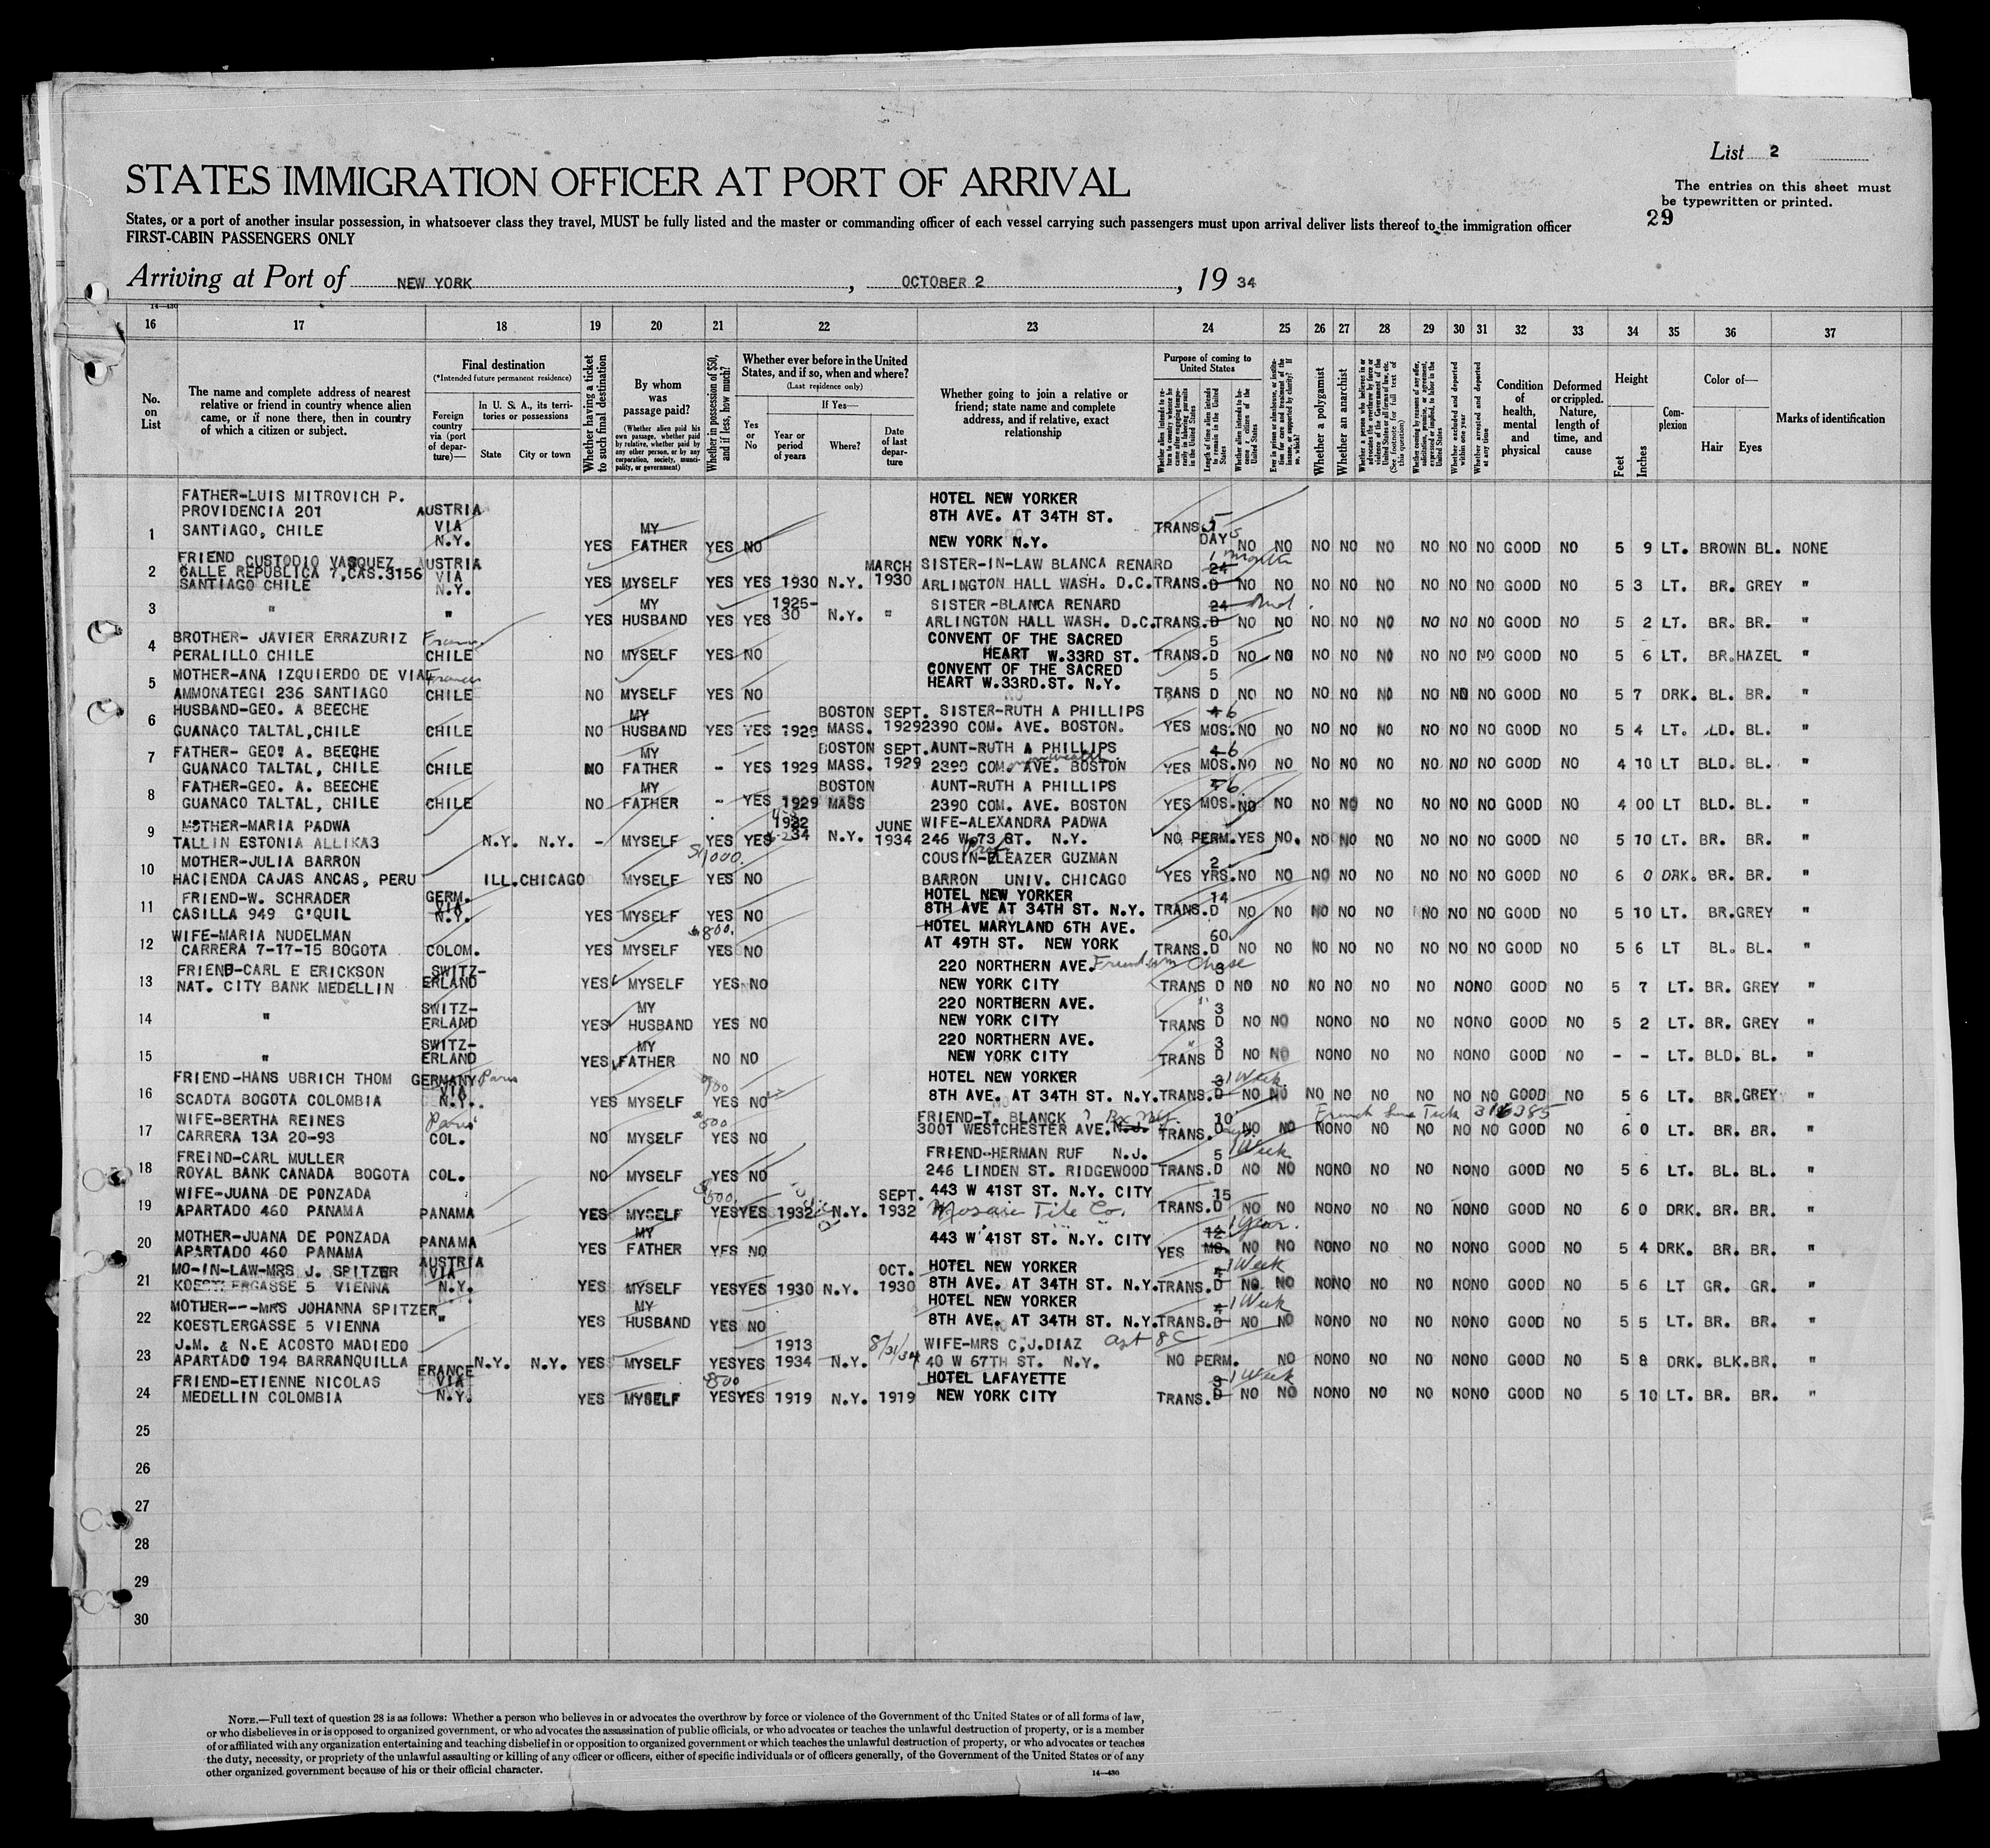 List 2
STATES IMMIGRATION OFFICER AT PORT OF ARRIVAL
The entries on this sheet must
be typewritten or printed.
29
States, or a port of another insular possession, in whatsoever class they travel, MUST be fully listed and the master or commanding officer of each vessel carrying such passengers must upon arrival deliver lists thereof to the immigration officer
FIRST-CABIN PASSENGERS ONLY
Arriving at Port of NEW YORK, OCTOBER 2, 19 34
14—430
16 17 18 19 20 21 22 23 24 25 26 27 28 29 30 31 32 33 34 35 36 37
No. on List
The name and complete address of nearest relative or friend in country whence alien came, or if none there, then in country of which a citizen or subject.
Final destination
(*Intended future permanent residence)
Foreign country via (port of departure)—
In U. S. A., its territories or possessions
State City or town
Whether having a ticket to such final destination
By whom was passage paid?
(Whether alien paid his own passage, whether paid by relative, whether paid by any other person, or by any corporation, society, municipality, or government)
Whether in possession of $50, and if less, how much?
Whether ever before in the United States, and if so, when and where?
(Last residence only)
Yes or No
If Yes—
Year or period of years
Where?
Date of last departure
Whether going to join a relative or friend; state name and complete address, and if relative, exact relationship
Purpose of coming to United States
Whether alien intends to return to country whence he came after engaging temporarily in laboring pursuits in the United States
Length of time alien intends to remain in the United States
Whether alien intends to become a citizen of the United States
Ever in prison or almshouse, or institution for care and treatment of the insane, or supported by charity? If so, which?
Whether a polygamist
Whether an anarchist
Whether a person who believes in or advocates the overthrow by force or violence of the Government of the United States or all forms of law, etc. (See footnote for full text of this question)
Whether coming by reason of any offer, solicitation, promise, or agreement, expressed or implied, to labor in the United States
Whether excluded and deported within one year
Whether arrested and deported at any time
Condition of health, mental and physical
Deformed or crippled. Nature, length of time, and cause
Height
Feet Inches
Complexion
Color of—
Hair Eyes
Marks of identification
FATHER-LUIS MITROVICH P. HOTEL NEW YORKER
PROVIDENCIA 201 AUSTRIA 8TH AVE. AT 34TH ST. 5
1 SANTIAGO, CHILE VIA MY TRANS.
N.Y. YES FATHER YES NO NEW YORK N.Y. DAYS NO NO NO NO NO NO NO NO GOOD NO 5 9 LT. BROWN BL. NONE
FRIEND CUSTODIO VASQUEZ AUSTRIA MARCH SISTER-IN-LAW BLANCA RENARD 1 month
2 CALLE REPUBLICA 7,CAS.3156 VIA 24
SANTIAGO CHILE N.Y. YES MYSELF YES YES 1930 N.Y. 1930 ARLINGTON HALL WASH. D.C. TRANS. D NO NO NO NO NO NO NO NO GOOD NO 5 3 LT. BR. GREY "
3 " " MY 1925- SISTER-BLANCA RENARD 24
YES HUSBAND YES YES 30 N.Y. " ARLINGTON HALL WASH. D.C. TRANS. D NO NO NO NO NO NO NO NO GOOD NO 5 2 LT. BR. BR. "
4 BROTHER- JAVIER ERRAZURIZ CONVENT OF THE SACRED 5
PERALILLO CHILE CHILE NO MYSELF YES NO HEART W.33RD ST. TRANS. D NO NO NO NO NO NO NO NO GOOD NO 5 6 LT. BR. HAZEL "
5 MOTHER-ANA IZQUIERDO DE VIAL CONVENT OF THE SACRED 5
AMMONATEGI 236 SANTIAGO CHILE NO MYSELF YES NO HEART W.33RD.ST. N.Y. TRANS D NO NO NO NO NO NO NO NO GOOD NO 5 7 DRK. BL. BR. "
6 HUSBAND-GEO. A BEECHE MY BOSTON SEPT. SISTER-RUTH A PHILLIPS 4 6
GUANACO TALTAL,CHILE CHILE NO HUSBAND YES YES 1929 MASS. 1929 2390 COM. AVE. BOSTON. YES MOS. NO NO NO NO NO NO NO NO GOOD NO 5 4 LT. BLD. BL. "
7 FATHER- GEO. A. BEECHE MY BOSTON SEPT. AUNT-RUTH A PHILLIPS 4 6
GUANACO TALTAL, CHILE CHILE NO FATHER - YES 1929 MASS. 1929 2390 COM. AVE. BOSTON YES MOS. NO NO NO NO NO NO NO NO GOOD NO 4 10 LT BLD. BL. "
8 FATHER-GEO. A. BEECHE MY BOSTON AUNT-RUTH A PHILLIPS 6
GUANACO TALTAL, CHILE CHILE NO FATHER - YES 1929 MASS 2390 COM. AVE. BOSTON YES MOS. NO NO NO NO NO NO NO NO GOOD NO 4 00 LT BLD. BL. "
9 MOTHER-MARIA PADWA 1932 JUNE WIFE-ALEXANDRA PADWA
TALLIN ESTONIA ALLIKA3 N.Y. N.Y. - MYSELF YES YES 34 N.Y. 1934 246 W 73 ST. N.Y. NO PERM. YES NO. NO NO NO NO NO NO GOOD NO 5 10 LT. BR. BR. "
10 MOTHER-JULIA BARRON $1000. Prof COUSIN-ELEAZER GUZMAN 2
HACIENDA CAJAS ANCAS, PERU ILL. CHICAGO MYSELF YES NO BARRON UNIV. CHICAGO YES YRS. NO NO NO NO NO NO NO NO GOOD NO 6 0 DRK. BR. BR. "
11 FRIEND-W. SCHRADER GERM. VIA HOTEL NEW YORKER 14
CASILLA 949 G'QUIL N.Y. YES MYSELF YES NO 8TH AVE AT 34TH ST. N.Y. TRANS. D NO NO NO NO NO NO NO NO GOOD NO 5 10 LT. BR. GREY "
12 WIFE-MARIA NUDELMAN $800. HOTEL MARYLAND 6TH AVE. 60
CARRERA 7-17-15 BOGOTA COLOM. YES MYSELF YES NO AT 49TH ST. NEW YORK TRANS. D NO NO NO NO NO NO NO NO GOOD NO 5 6 LT BL. BL. "
13 FRIEND-CARL E ERICKSON SWITZ- 220 NORTHERN AVE. Friend Chase 3
NAT. CITY BANK MEDELLIN ERLAND YES MYSELF YES NO NEW YORK CITY TRANS D NO NO NO NO NO NO NO NO GOOD NO 5 7 LT. BR. GREY "
14 " SWITZ- MY 220 NORTHERN AVE. " 3
ERLAND YES HUSBAND YES NO NEW YORK CITY TRANS D NO NO NO NO NO NO NO NO GOOD NO 5 2 LT. BR. GREY "
15 " SWITZ- MY 220 NORTHERN AVE. " 3
ERLAND YES FATHER NO NO NEW YORK CITY TRANS D NO NO NO NO NO NO NO NO GOOD NO - - LT. BLD. BL. "
16 FRIEND-HANS UBRICH THOM GERMANY Paris VIA HOTEL NEW YORKER 3 1 Week
SCADTA BOGOTA COLOMBIA N.Y. YES MYSELF YES NO 8TH AVE. AT 34TH ST. N.Y. TRANS. D NO NO NO NO NO NO NO NO GOOD NO 5 6 LT. BR. GREY "
17 WIFE-BERTHA REINES Paris 500 FRIEND-T. BLANCK 10 French Line Tick 316385
CARRERA 13A 20-93 COL. NO MYSELF YES NO 3001 WESTCHESTER AVE. N.J. TRANS. NO NO NO NO NO NO NO NO GOOD NO 6 0 LT. BR. BR. "
18 FREIND-CARL MULLER FRIEND-HERMAN RUF N.J. 5 1 Week
ROYAL BANK CANADA BOGOTA COL. NO MYSELF YES NO 246 LINDEN ST. RIDGEWOOD TRANS. D NO NO NO NO NO NO NO NO GOOD NO 5 6 LT. BL. BL. "
19 WIFE-JUANA DE PONZADA $500. SEPT. 443 W 41ST ST. N.Y. CITY 15
APARTADO 460 PANAMA PANAMA YES MYSELF YES YES 1932 N.Y. 1932 Mosaic Tile Co. TRANS. D NO NO NO NO NO NO NO NO GOOD NO 6 0 DRK. BR. BR. "
20 MOTHER-JUANA DE PONZADA PANAMA MY 443 W 41ST ST. N.Y. CITY 12 1 year.
APARTADO 460 PANAMA YES FATHER YES NO YES MO. NO NO NO NO NO NO NO NO GOOD NO 5 4 DRK. BR. BR. "
21 MO-IN-LAW-MRS J. SPITZER AUSTRIA VIA OCT. HOTEL NEW YORKER 1 Week
KOESTLERGASSE 5 VIENNA N.Y. YES MYSELF YES YES 1930 N.Y. 1930 8TH AVE. AT 34TH ST. N.Y. TRANS. D NO NO NO NO NO NO NO NO GOOD NO 5 6 LT GR. GR. "
22 MOTHER---MRS JOHANNA SPITZER " MY HOTEL NEW YORKER 4 1 Week
KOESTLERGASSE 5 VIENNA YES HUSBAND YES NO 8TH AVE. AT 34TH ST. N.Y. TRANS. D NO NO NO NO NO NO NO NO GOOD NO 5 5 LT. BR. BR. "
23 J.M. & N.E ACOSTO MADIEDO 1913 8/31/34 WIFE-MRS C.J.DIAZ apt 8C
APARTADO 194 BARRANQUILLA N.Y. N.Y. YES MYSELF YES YES 1934 N.Y. 40 W 67TH ST. N.Y. NO PERM. NO NO NO NO NO NO NO GOOD NO 5 8 DRK. BLK. BR. "
24 FRIEND-ETIENNE NICOLAS FRANCE VIA 500 HOTEL LAFAYETTE 3 1 Week
MEDELLIN COLOMBIA N.Y. YES MYSELF YES YES 1919 N.Y. 1919 NEW YORK CITY TRANS. D NO NO NO NO NO NO NO NO GOOD NO 5 10 LT. BR. BR. "
25
26
27
28
29
30
NOTE.—Full text of question 28 is as follows: Whether a person who believes in or advocates the overthrow by force or violence of the Government of the United States or of all forms of law,
or who disbelieves in or is opposed to organized government, or who advocates the assassination of public officials, or who advocates or teaches the unlawful destruction of property, or is a member
of or affiliated with any organization entertaining and teaching disbelief in or opposition to organized government or which teaches the unlawful destruction of property, or who advocates or teaches
the duty, necessity, or propriety of the unlawful assaulting or killing of any officer or officers, either of specific individuals or of officers generally, of the Government of the United States or of any
other organized government because of his or their official character.
14—430